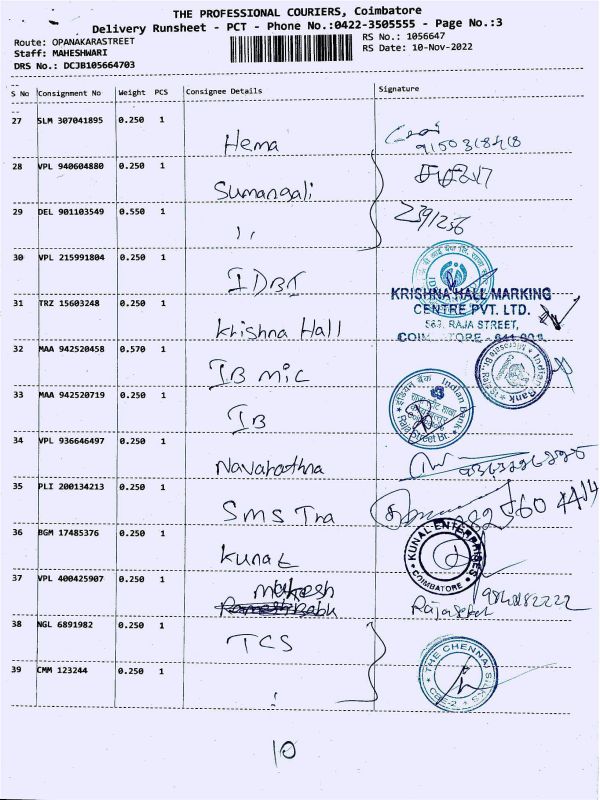 THE PROFESSIONAL COURIERS, Coimbatore
Delivery Runsheet - PCT - Phone No.:0422-3505555 - Page No.:3
Route: OPANAKARASTREET
Staff: MAHESHWARI
DRS No.: DCJB105664703
RS No.: 1056647
RS Date: 10-Nov-2022
S No Consignment No Weight PCS Consignee Details Signature
27 SLM 307041895 0.250 1 Hema
28 VPL 940604880 0.250 1 Sumangali
29 DEL 901103549 0.550 1 ,,
30 VPL 215991804 0.250 1 IDBI
KRISHNA HALL MARKING
CENTRE PVT. LTD.
563, RAJA STREET,
31 TRZ 15603248 0.250 1 Krishna Hall
32 MAA 942520458 0.570 1 IB Mic
Indian Bank
33 MAA 942520719 0.250 1 IB
इंडियन बैंक Indian Bank
Raja Street Br.
34 VPL 936646497 0.250 1 Navarathna
35 PLI 200134213 0.250 1 SMS Tra
36 BGM 17485376 0.250 1 Kunal
KUNAL ENTERPRISES
COIMBATORE
37 VPL 400425907 0.250 1 Mahesh
38 NGL 6891982 0.250 1 TCS
THE CHENNAI SILKS
CBE-2
39 CMM 123244 0.250 1
10